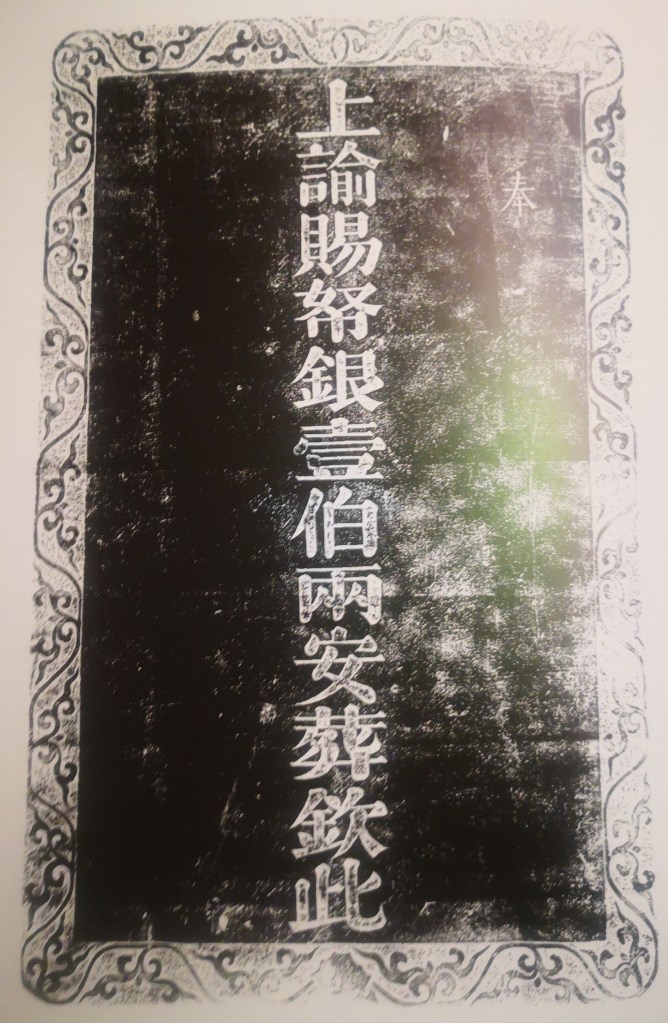 奉
上諭賜帑銀壹伯兩安葬欽此